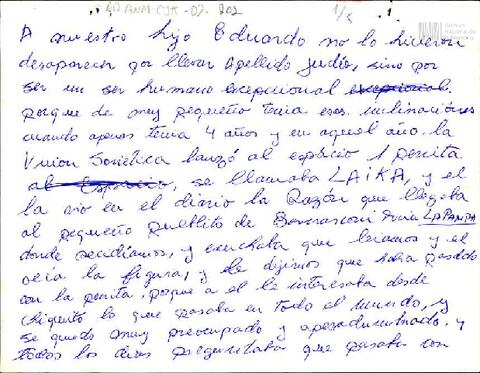 AR ANM CJK-02-202
1/5
A nuestro hijo Eduardo no lo hicieron
desaparecer por llevar apellido judio, sino por
ser un ser humano excepcional
porque de muy pequeño tenia esas inclinaciones
cuando apenas tenia 4 años y en aquel año, la
Union Sovietica lanzó al espacio 1 perrita
al Espacio, se llamaba LAIKA, y el
la vio en el diario la Razón que llegaba
al pequeño pueblito de Bernasconi LA PAMPA
donde residiamos, y escuchaba que leiamos y el
veia la figura, y le dijimos que habia pasado
con la perrita, porque a el le interesaba desde
chiquito lo que pasaba en todo el mundo, y
se quedó muy preocupado y apesadumbrado, y
todos los dias preguntaba que pasaba con